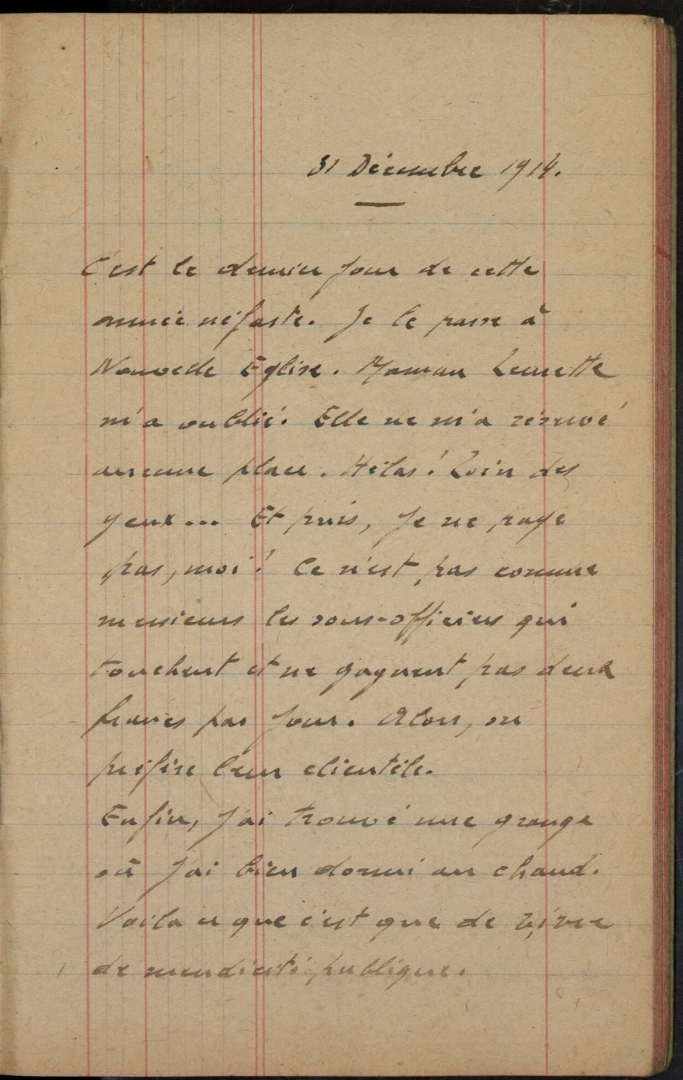 31 Décembre 1914.
C'est le dernier jour de cette
année néfaste. Je le passe à
Nouvelle Eglise. Maman Leurette
m'a oublié. Elle ne m'a réservé
aucune place. Hélas! Loin des
yeux... Et puis, je ne paye
pas, moi! Ce n'est pas comme
messieurs les sous-officiers qui
touchent et ne gagnent pas deux
francs par jour. Alors, on
préfère leur clientèle.
Enfin, j'ai trouvé une grange
où j'ai bien dormi au chaud.
Voilà ce que c'est que de vivre
de mendicité publique.